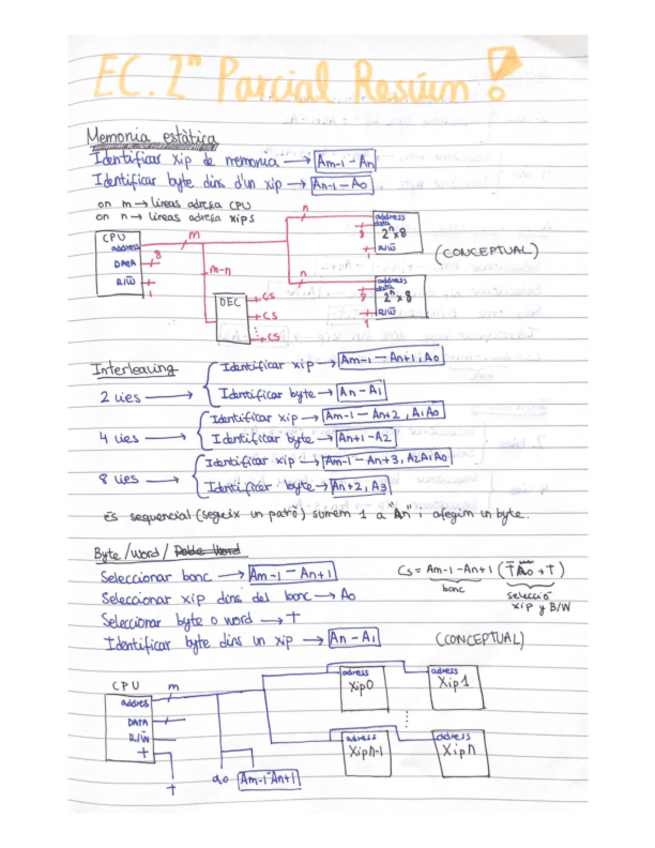 EC. 2ⁿ Parcial Resúum!
Memoria estàtica
Identificar xip de memoria → Am-1 - An
Identificar byte dins d'un xip → An-1 - A0
on m → lineas adreça CPU
on n → lineas adreça xips
CPU
address
DATA
R/W̅
m
8
1
m-n
DEC
CS
CS
CS
n
address
data
2ⁿx8
R/W̅
8
1
(CONCEPTUAL)
n
address
data
2ⁿx8
R/W̅
8
1
Interleaving
2 vies → Identificar xip → Am-1 - An+1, A0
Identificar byte → An - A1
4 vies → Identificar xip → Am-1 - An+2, A1A0
Identificar byte → An+1 - A2
8 vies → Identificar xip → Am-1 - An+3, A2A1A0
Identificar byte → An+2, A3
És sequencial (segeix un patró) sumem 1 a "An" i afegim un byte.
Byte/word/ Doble Word
Seleccionar banc → Am-1 - An+1
Seleccionar xip dins del banc → A0
Seleccionar byte o word → T
Identificar byte dins un xip → An - A1
CS = Am-1 - An+1 (T̅A̅0 + T)
banc
selecció
xip y B/W
(CONCEPTUAL)
CPU
m
addres
DATA
R/W̅
T
T
a0
Am-1 - An+1
adress
Xip0
adress
Xip1
adress
Xipn-1
adress
Xipn